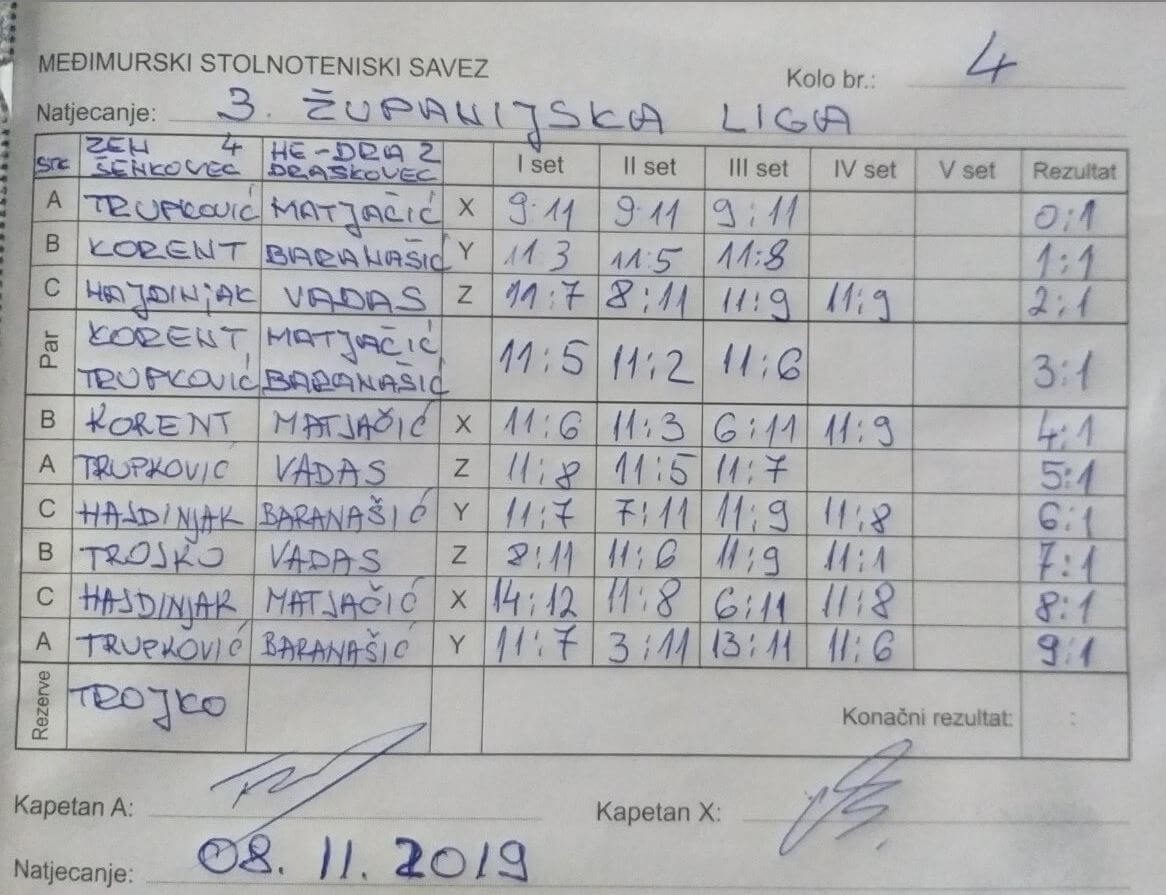 MEĐIMURSKI STOLNOTENISKI SAVEZ
Kolo br.: 4
Natjecanje: 3. ŽUPANIJSKA LIGA
STK ZEN 4 ŠENKOVEC HE-DRA 2 DRAŠKOVEC I set II set III set IV set V set Rezultat
A TRUPKOVIĆ MATJAČIĆ X 9:11 9:11 9:11 0:1
B KORENT BARANAŠIĆ Y 11 3 11:5 11:8 1:1
C HAJDINJAK VADAS Z 11:7 8:11 11:9 11:9 2:1
Par KORENT, TRUPKOVIĆ MATJAČIĆ, BARANAŠIĆ 11:5 11:2 11:6 3:1
B KORENT MATJAČIĆ X 11:6 11:3 6:11 11:9 4:1
A TRUPKOVIĆ VADAS Z 11:8 11:5 11:7 5:1
C HAJDINJAK BARANAŠIĆ Y 11:7 7:11 11:9 11:8 6:1
B TROJKO VADAS Z 8:11 11:6 11:9 11:1 7:1
C HAJDINJAK MATJAČIĆ X 14:12 11:8 6:11 11:8 8:1
A TRUPKOVIĆ BARANAŠIĆ Y 11:7 3:11 13:11 11:6 9:1
Rezerve TROJKO Konačni rezultat: :
Kapetan A: Kapetan X:
Natjecanje: 08. 11. 2019